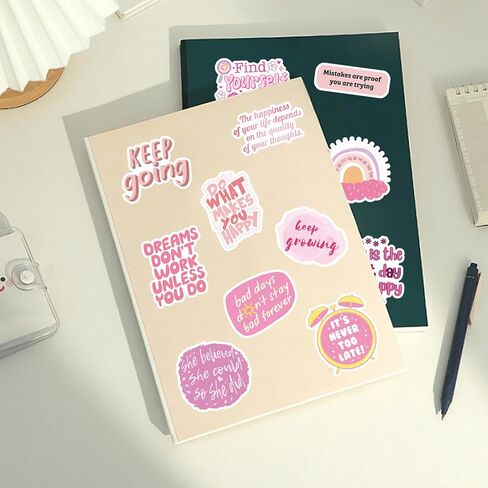 Find
Yourself
Mistakes are proof
you are trying
The happiness
of your life depends
on the quality
of your thoughts.
KEEP
going
DO
WHAT
MAKES
YOU
HAPPY
keep
growing
DREAMS
DON'T
WORK
UNLESS
YOU DO
is the
day
bad days
don't stay
bad forever
IT'S
NEVER
TOO
LATE!
she believed
she could
so she did